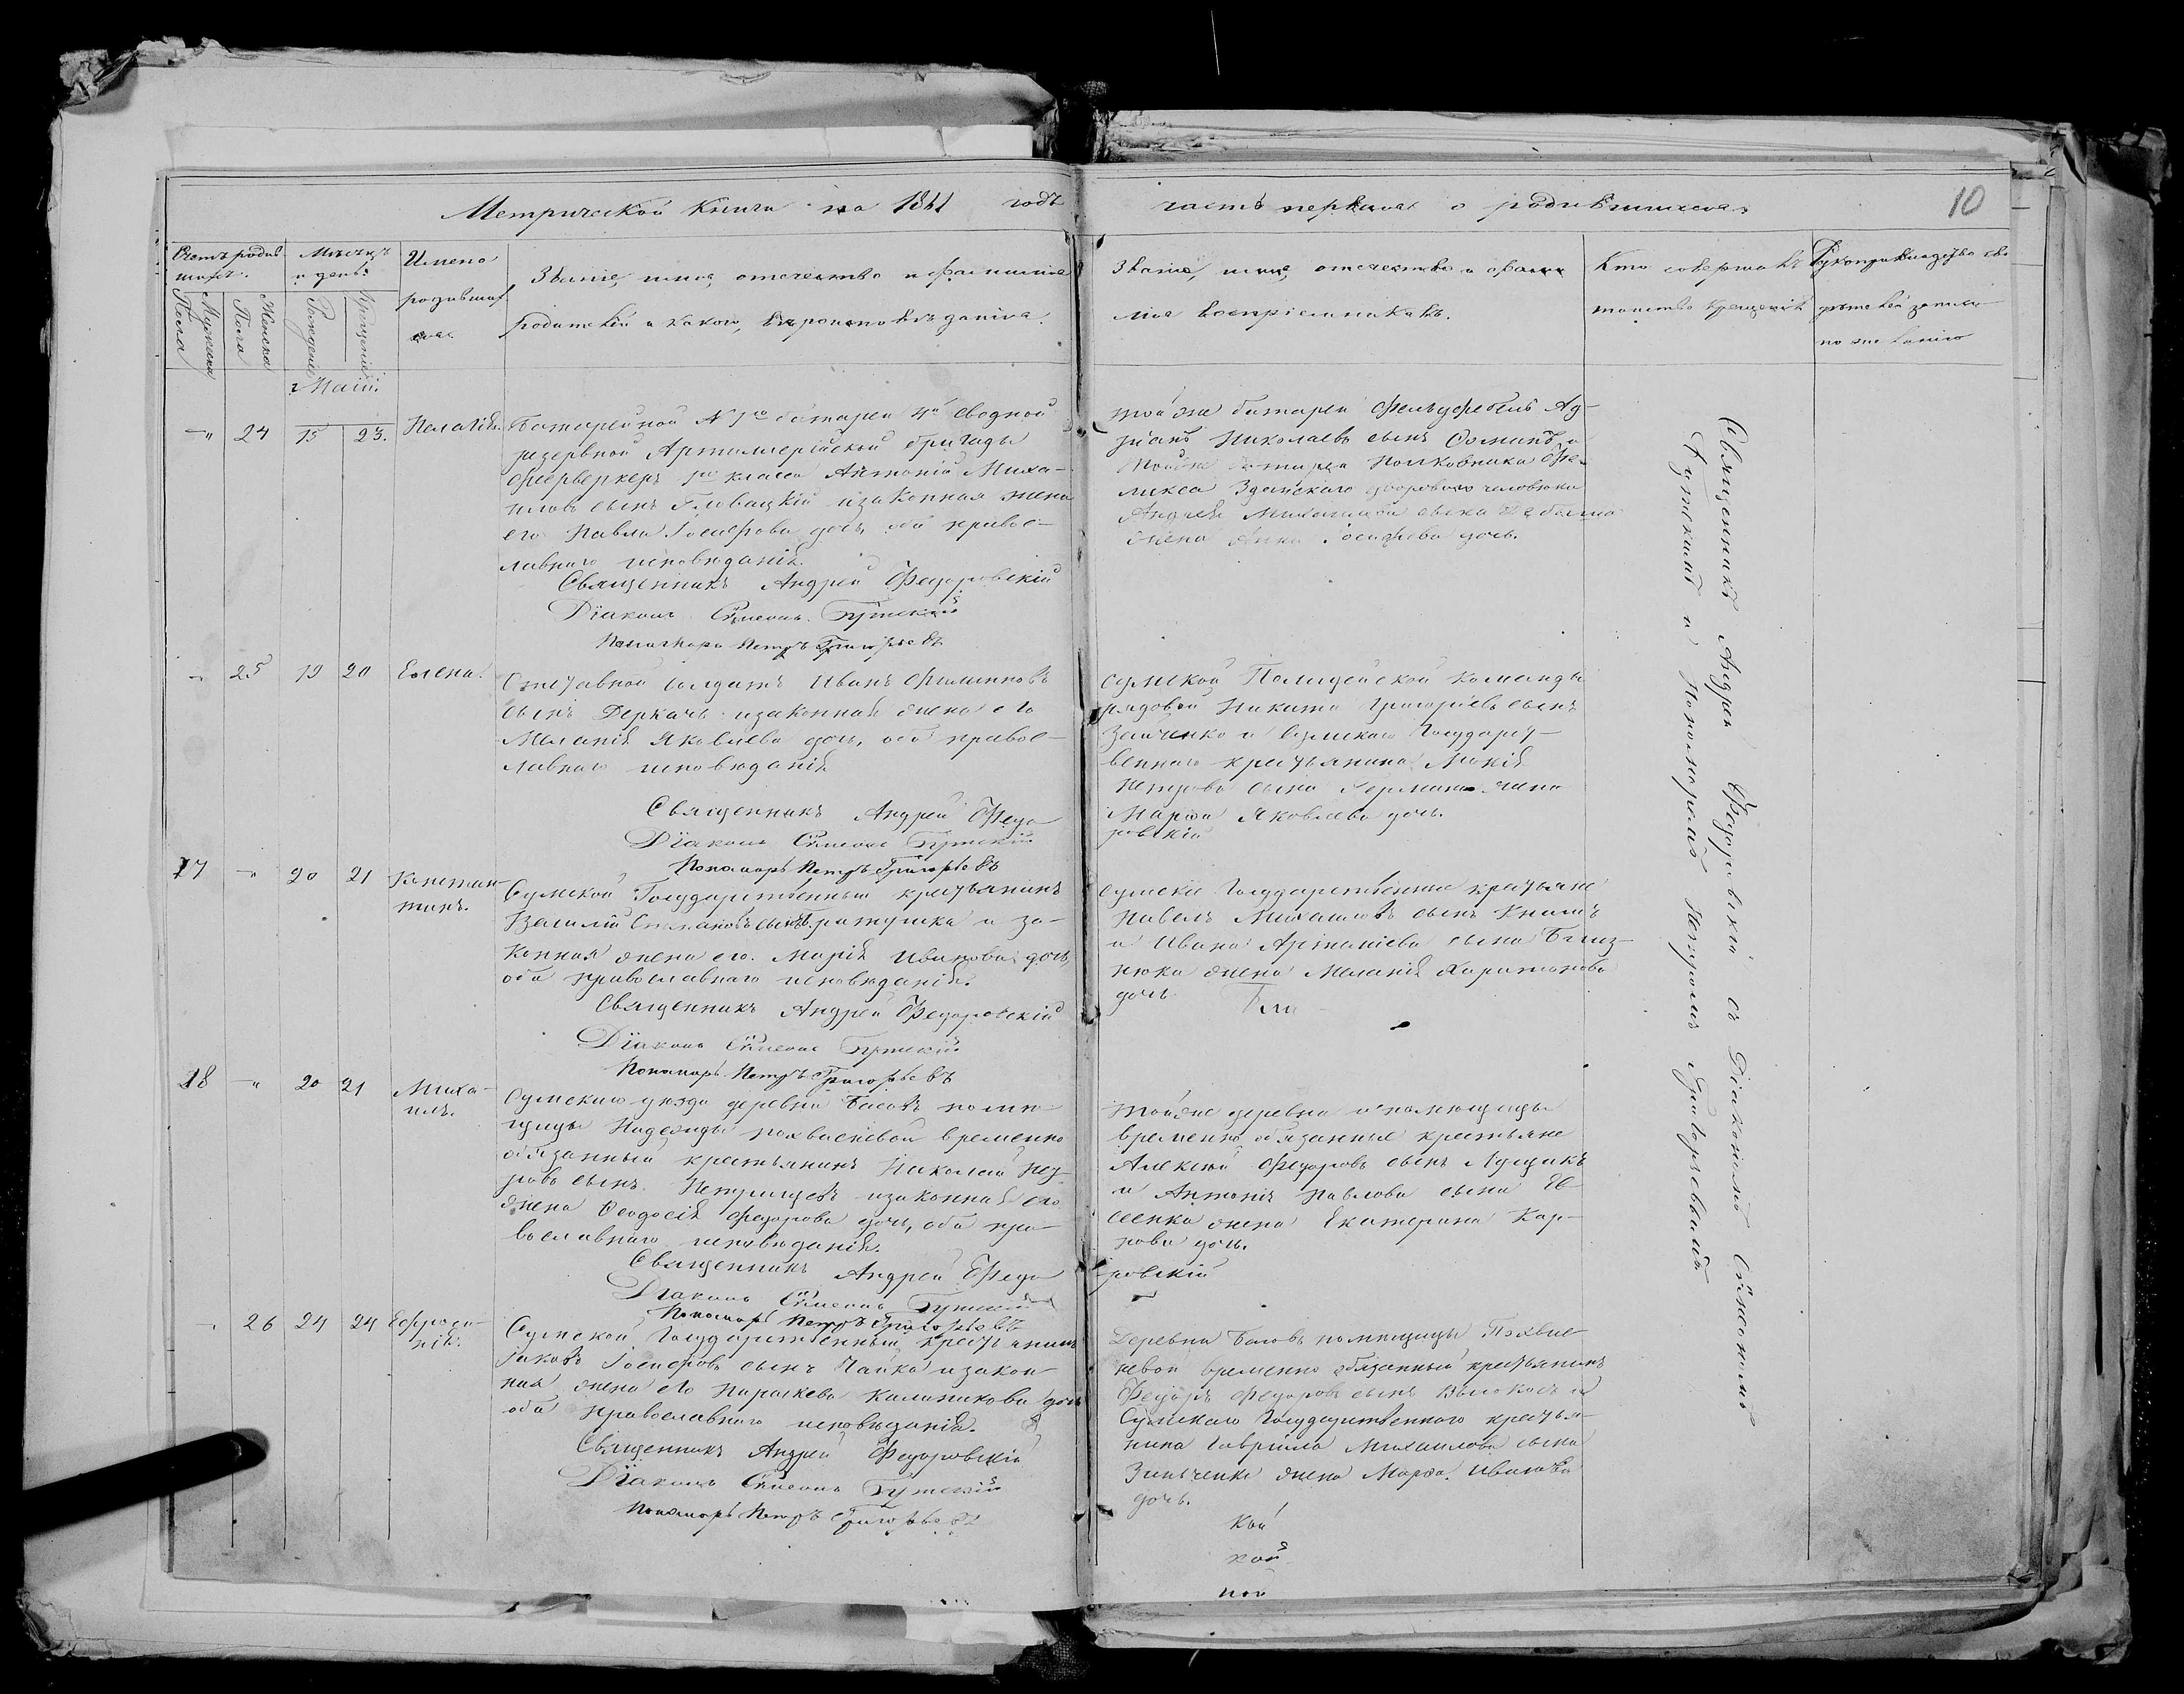 Метрической книги на 1861 годъ
часть первая о родившихся
10
Счетъ родив
шихъ.
Мѣсяцъ
и день.
Имена
родивших
ся.
Мужеска
Пола
Женска
Пола
Рожденія
Крещенія
Званіе, имя, отечество и фамилія
родителей и какого вѣроисповѣданія.
Званіе, имя, отечество и фами
лія воспріемниковъ.
Кто совершалъ
таинство крещенія
Рукоприкладство сви
дѣтелей записи
по желанію
Маій.
" 24 15 23. Пелагія.
Батарейной N 1го батареи 4й сводной
резервной Артиллерійской бригады
фейрверкеръ 1го класса Антоній Миха-
иловъ сынъ Гловацкій изаконная жена
его Павла Іосифова дочь, оба правос-
лавнаго исповѣданія.
Священникъ Андрей Федоровскій
Діаконъ Сѵмеонъ Бутскій
Пономарь Петръ Григорьевъ
той же батареи Фельдфебель Ад-
ріанъ Николаевъ сынъ и
той же батареи Полковника Фе-
ликса двороваго человѣка
Андрея сына
жена Анна Іосифова дочь.
" 25 19 20 Елена.
Отставной солдатъ Иванъ Филиповъ
сынъ Деркачь изаконная жена его
Меланія Яковлева дочь, оба правос-
лавнаго исповѣданія
Священникъ Андрей Федо
ровскій
Діаконъ Сѵмеонъ Бутскій
Пономарь Петръ Григорьевъ
Сумской Полицейской команды
рядовой Никита Григоріевъ сынъ
Заиченко и Сумскаго Государст-
веннаго крестьянина Мокія
Петрова сына жена
Марфа Яковлева дочь.
17 " 20 21 Констан-
тинъ.
Сумской Государственный крестьянинъ
Василій Степановъ сынъ Братушка и за-
конная жена его Марія Иванова дочь,
оба православнаго исповѣданія.
Священникъ Андрей Федоровскій
Діаконъ Сѵмеонъ Бутскій
Пономарь Петръ Григорьевъ
Сумскіе Государственные крестьяне
Павелъ Михаиловъ сынъ Книшъ
и Ивана Артеміева сына Близ-
нюка жена Меланія Харитонова
дочь.
18 " 20 21 Миха-
илъ.
Сумскаго уѣзда деревни Басовъ помѣ-
щицы Надежды Похвисневой временно
обязанный крестьянинъ Николай Пет-
ровъ сынъ Петрищевъ изаконная его
жена Феодосія Федорова дочь, оба пра-
вославнаго исповѣданія.
Священникъ Андрей Федо
ровскій
Діаконъ Сѵмеонъ Бутскій
Пономарь Петръ Григорьевъ
той же деревни и помѣщицы
временно обязанные крестьяне
Алексій Федоровъ сынъ
и Антонія Павлова сына Ев-
сенка жена Екатерина Кар-
пова дочь.
" 26 24 24 Ефроси-
нія.
Сумской Государственный крестьянинъ
Іаковъ Іосифовъ сынъ Чайка изакон-
ная жена его Параскева Калиникова дочь
оба православнаго исповѣданія.
Священникъ Андрей Федоровскій
Діаконъ Сѵмеонъ Бутскій
Пономарь Петръ Григорьевъ
Деревни Басовъ помѣщицы Похвис-
невой временно обязанный крестьянинъ
Федоръ Федоровъ сынъ и
Сумскаго Государственнаго крестья-
нина Гавріила Михаилова сына
Зинченка жена Марфа Иванова
дочь.
кой
кой
ной
Священникъ Андрей Федоровскій съ Діакономъ Сѵмеономъ
Бутскимъ и Пономаремъ Петромъ Григорьевымъ